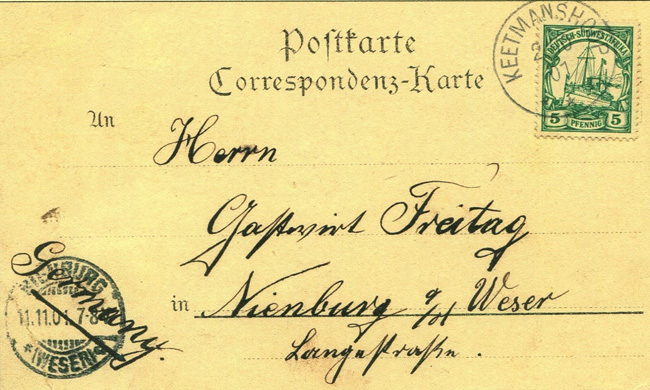 Postkarte
Correspondenz-Karte
KEETMANSHOOP
DEUTSCH-SÜDWESTAFRIKA
5 PFENNIG 5
An
Herrn
Gastwirt Freitag
in Nienburg a/d Weser
Langestraße.
Germany.
NIENBURG
11.11.01. 7-8
* (WESER)